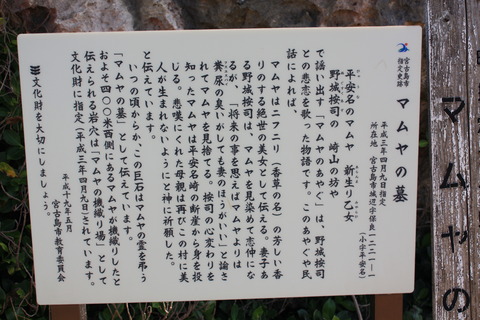 宮古島市
指定史跡
マムヤの墓
平成三年四月九日指定
所在地 宮古島市城辺字保良一二二一―一
(小字平安名)
平安名のマムヤ 新生り乙女
野城按司の 崎山の坊や
で謡い出す「マムヤのあやぐ」は、野城按司
との悲恋を歌った物語です。このあやぐや民
話によれば、
マムヤはニフニリ(香草の名)の芳しい香
りのする絶世の美女として伝える。妻子あ
る野城按司は、マムヤを見染めて恋仲にな
るが、「将来の事を思えばマムヤよりは
糞尿の臭いがしても妻のほうがいい」と諭さ
れてマムヤを見捨てる。按司の心変わりを
知ったマムヤは平安名崎の断崖から身を投
じる。悲嘆にくれた母親は再びこの村に美
人が生まれないようにと神に祈願した。
と伝えています。
いつの頃からか、この巨石はマムヤの霊を弔う
「マムヤの墓」として伝えています。
およそ四〇〇米西側にあるマムヤが機織りしたと
伝えられる岩穴は「マムヤの機織り場」として
文化財に指定(平成三年四月九日)されています。
文化財を大切にしましょう。
平成十九年五月
宮古島市教育委員会
マムヤの